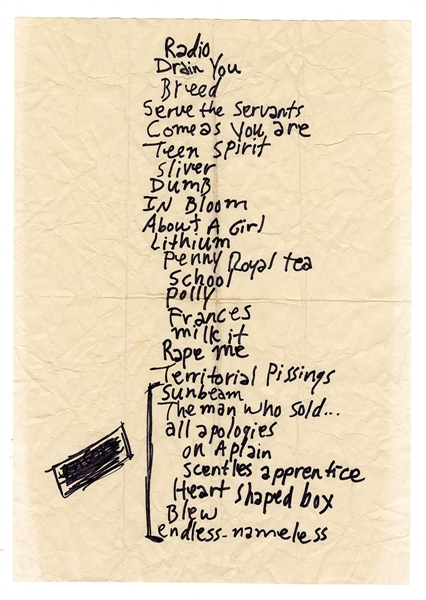 Radio
Drain You
Breed
Serve the Servants
Come as You are
Teen Spirit
Sliver
DumB
IN Bloom
About A Girl
Lithium
Penny Royal tea
School
Polly
Frances
milk it
Rape me
Territorial Pissings
Sunbeam
The man who sold...
all apologies
on A plain
scentles apprentice
Heart shaped box
Blew
endless-nameless